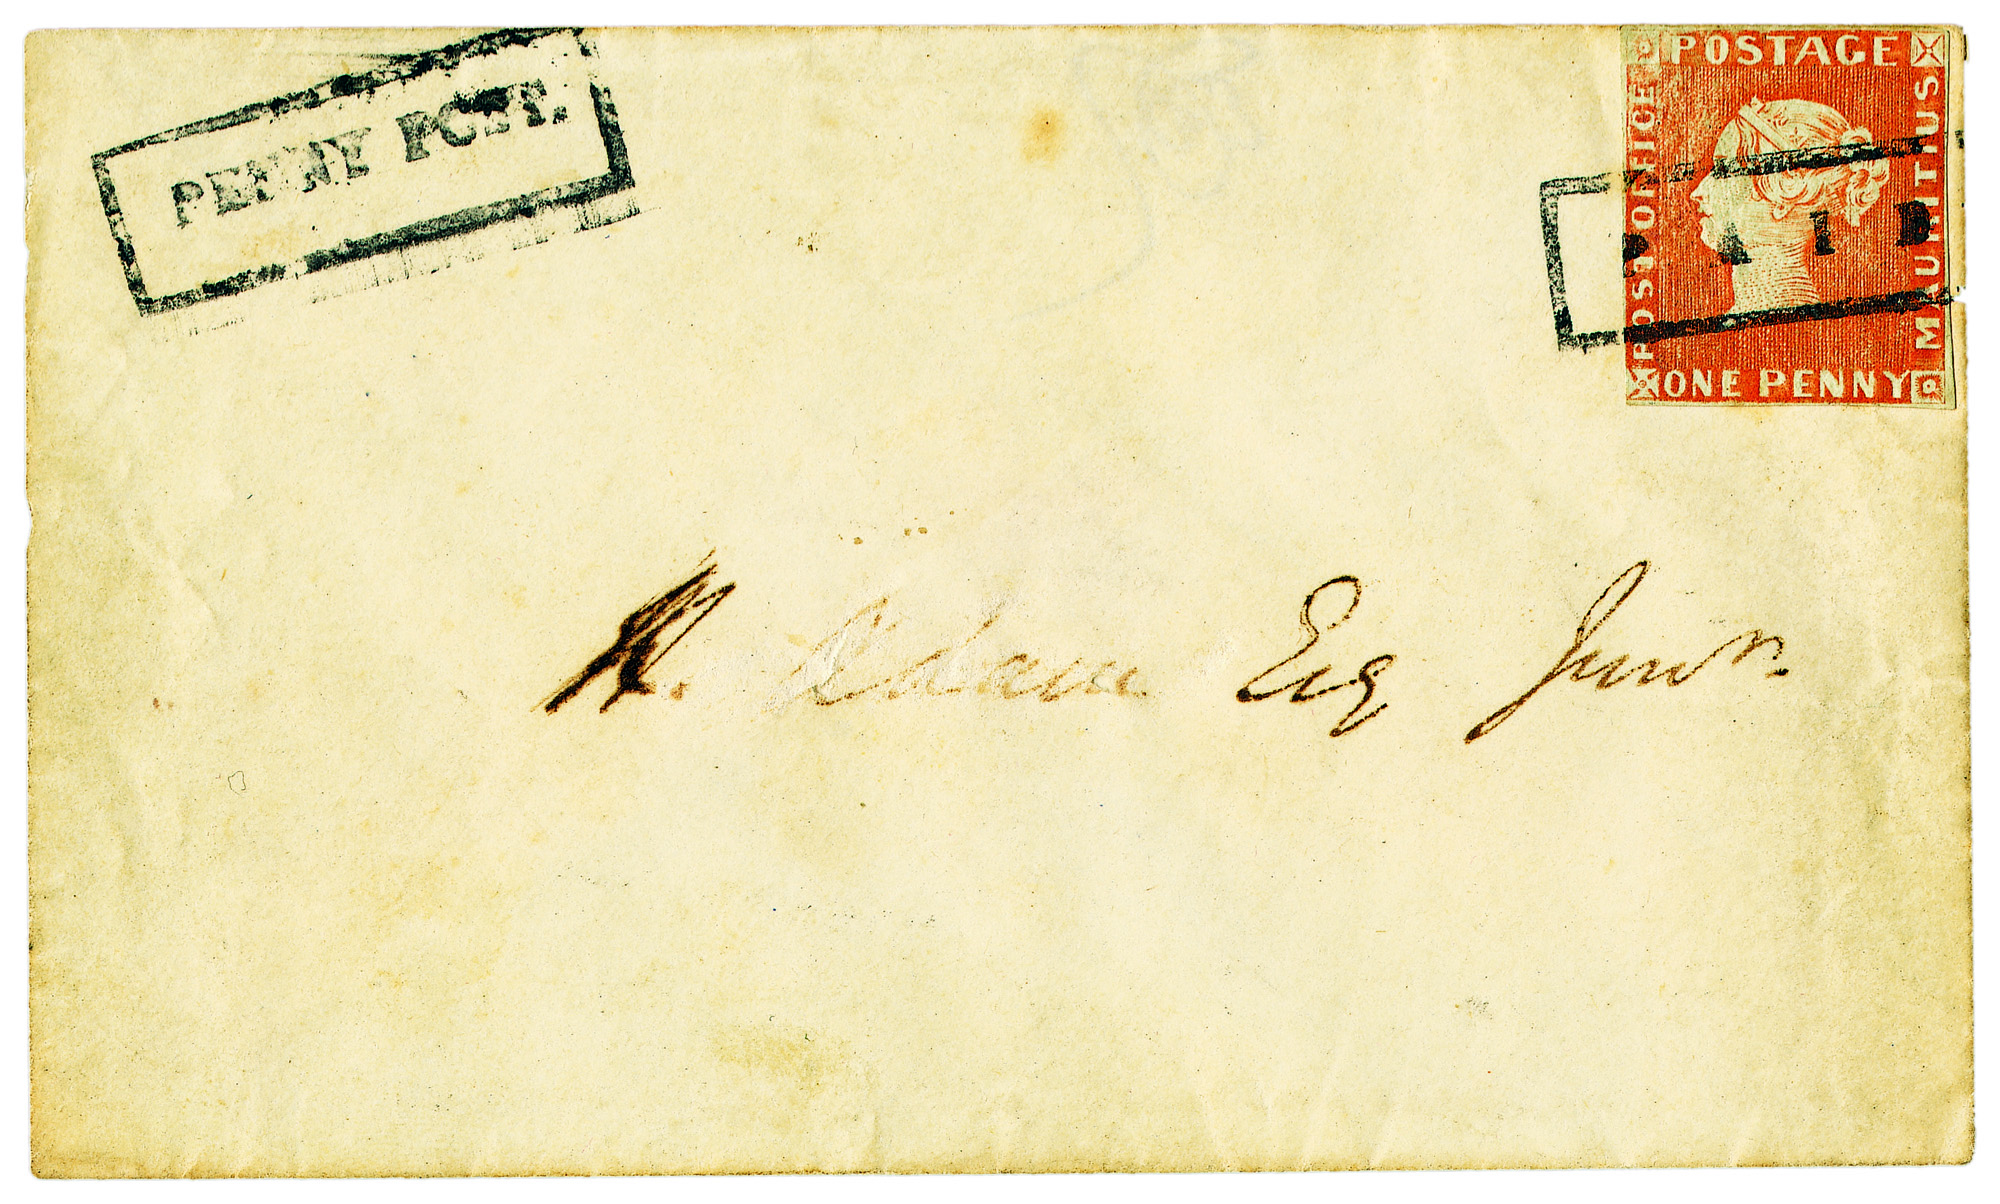 PENNY POST.
POSTAGE
POST OFFICE
MAURITIUS
ONE PENNY
PAID
H. Adam Esq Junr.